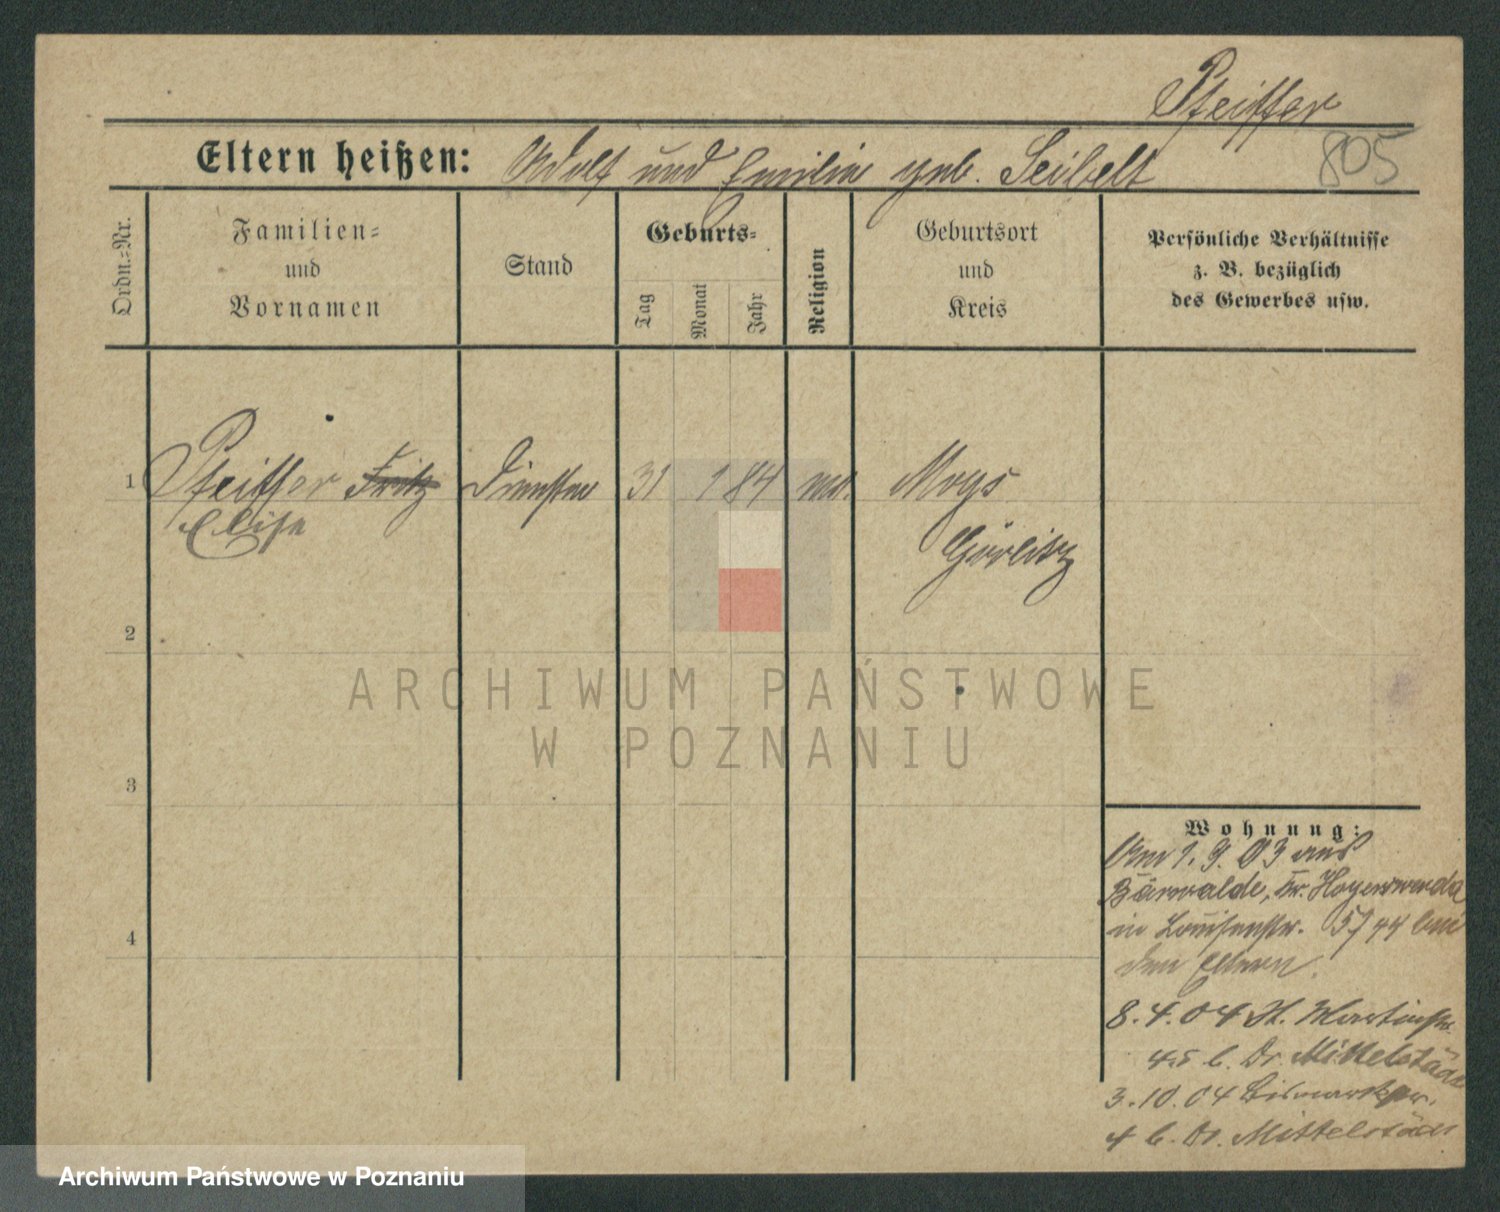 Pfeiffer
805
Eltern heißen: Adolf und Emilie geb. Seibelt
Ordn.-Nr.
Familien-
und
Vornamen
Stand
Geburts-
Tag
Monat
Jahr
Religion
Geburtsort
und
Kreis
Persönliche Verhältnisse
z. B. bezüglich
des Gewerbes usw.
1 Pfeiffer Fritz 31 1 84 ev. Moys
Elise
Görlitz
2
3
4
Wohnung:
Am 1. 9. 03 aus
Bärwalde, Kr. Hoyerswerda
in Louisenstr. bei
den Eltern.
8. 4. 04 St. Martinstr.
45 b. Dr. Mittelstädt
3. 10. 04 Bismarckstr.
4 b. Dr. Mittelstädt
ARCHIWUM PAŃSTWOWE
W POZNANIU
Archiwum Państwowe w Poznaniu